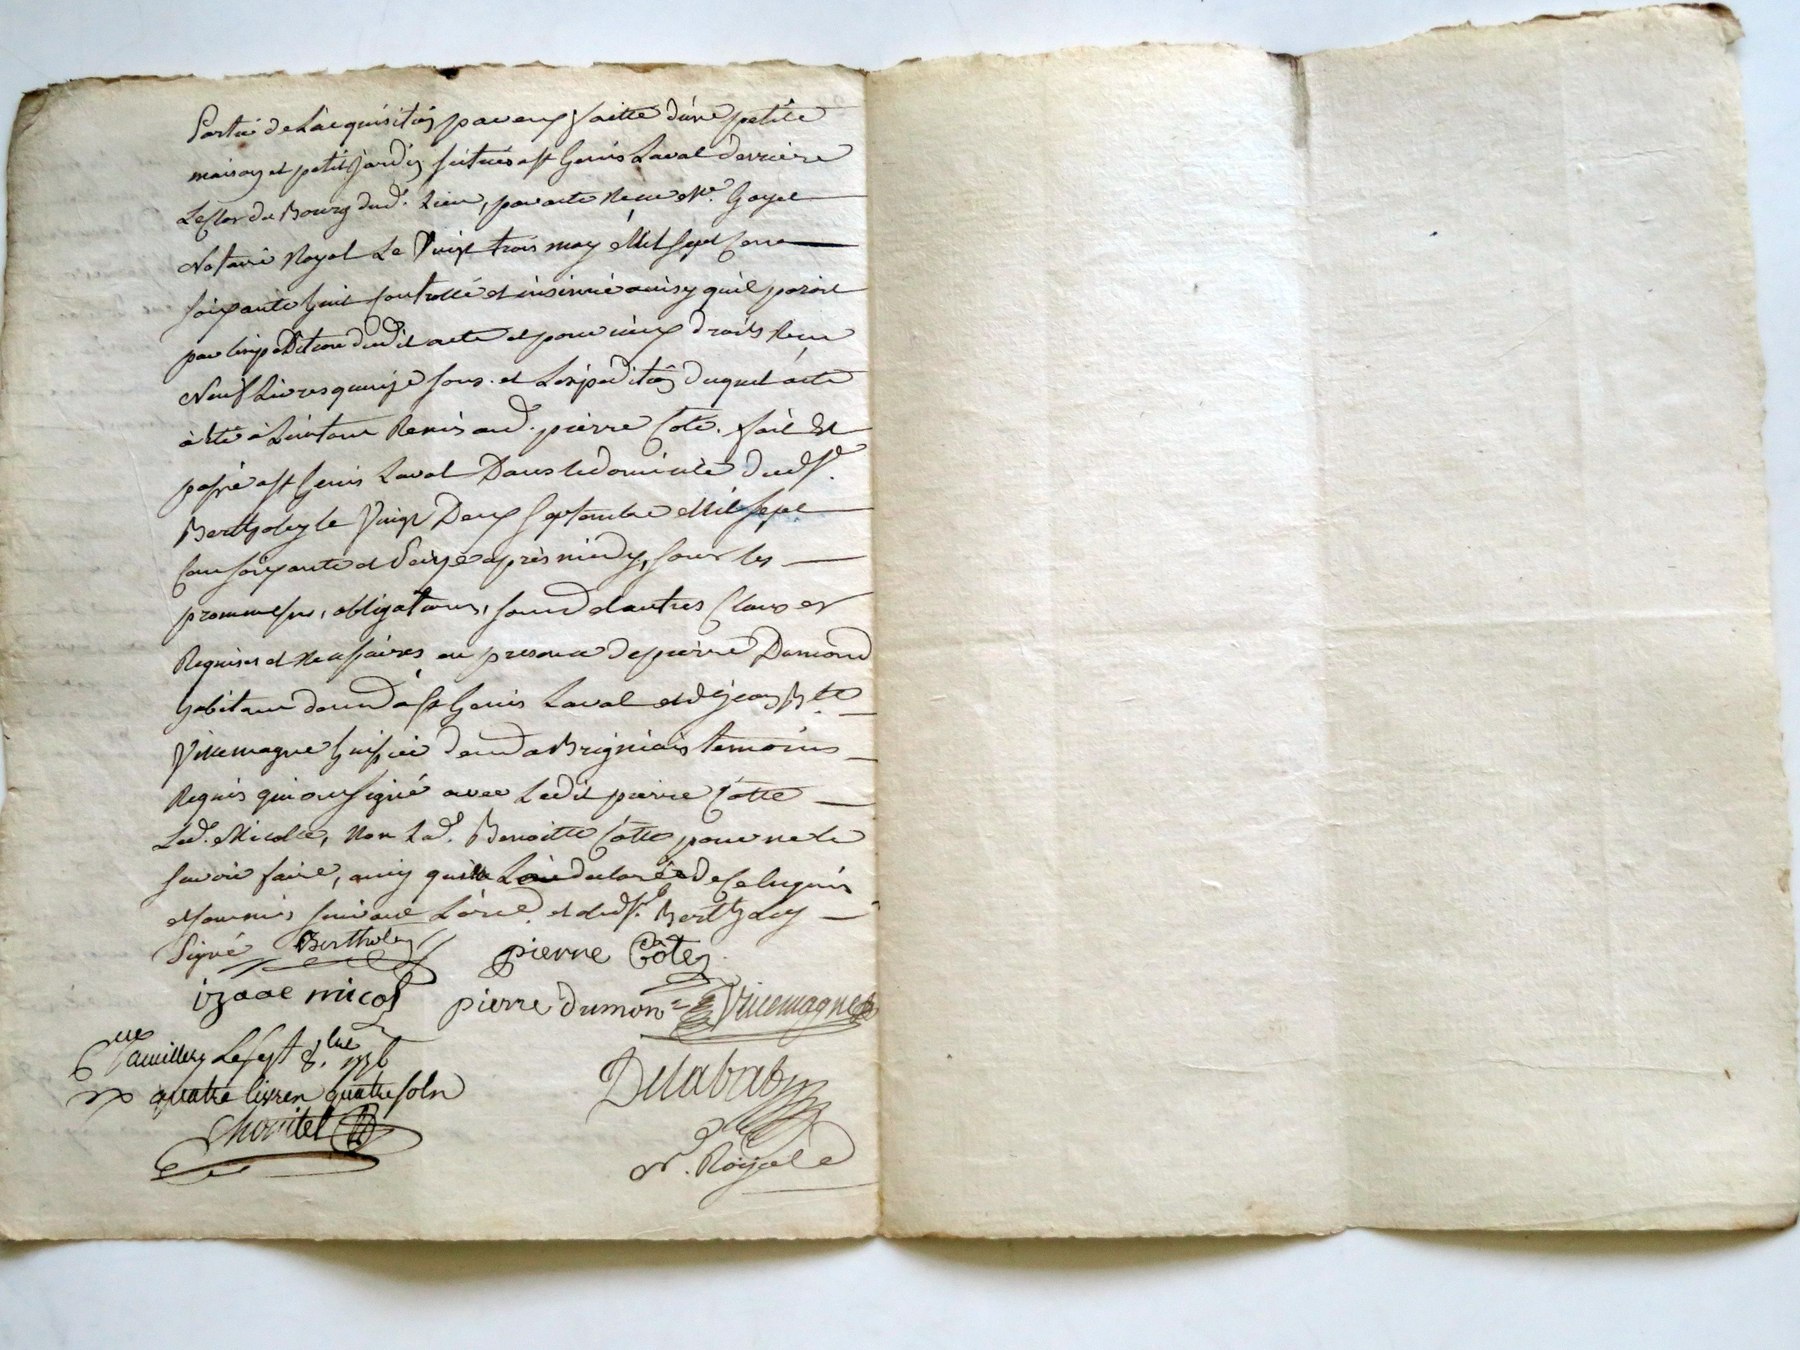 Partie de Lacquisitiõ par eux faitte dune petite
maison et petit jardin scitués a st Genis Laval derriere
Le Clos du Bourg dud. Lieu, par acte Receu Me. Goyet
Notaire Royal Le Vingt trois may Mil Sept Cens
soixante huit Controllé et insinué ainsy quil paroit
par lexpedition dudit acte et pour iceux droits Receu
Neuf Livres quinze sous. et Lexpeditiõ duquel acte
à été à Linstant Remis aud. pierre Cote. fait Et
passé a st Genis Laval Dans le domicile dud. sr.
Bertholey le Vingt Deux Septembre Mil Sept
Cens soixante et Seize apres midy, sous les
promesses, obligations, soumd. et autres Clauses
Requises et Necessaires en presence de pierre Dumond
habitant demt. à st Genis Laval et de jean Bte.
Villemagne huissier demt. a Brignais temoins
Requis qui ont signé avec Ledit pierre Cotte
Led. Micolle, Non Lad. Benoitte Cotte pour ne le
savoir faire, ainsy quelle La declaré de ce Enquis
et sommés suivant Lord. et led. sr. Bertholey
Signé Bertholey pierre Côte
izaac micol pierre dumon Villemagne
Clle a Le sept 8.bre 1776
quatre livres quatre sols
Delabaty
Nre. Royal